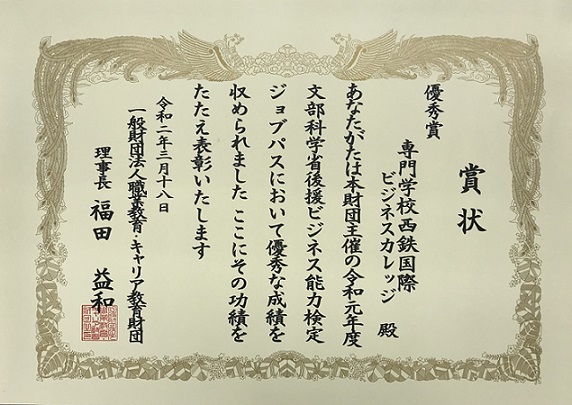 賞状
優秀賞
専門学校西鉄国際
ビジネスカレッジ 殿
あなたがたは本財団主催の令和元年度
文部科学省後援ビジネス能力検定
ジョブパスにおいて優秀な成績を
収められました ここにその功績を
たたえ表彰いたします
令和二年三月十八日
一般財団法人職業教育・キャリア教育財団
理事長 福田 益和